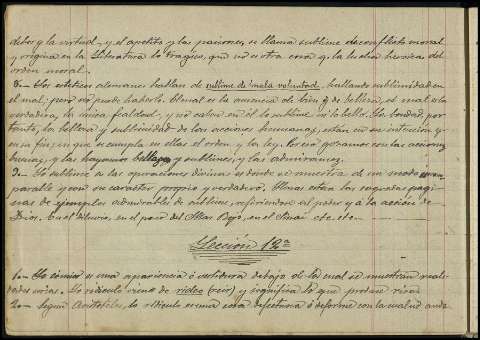 deber y la virtud, y el apetito y las pasiones, se llama sublime de conflicto moral
y origina en la Literatura lo trágico, que no es otra cosa q. la lucha heroica del
orden moral.
8 — Los estéticos alemanes hablan de sublime de mala voluntad, hallando sublimidad en
el mal; pero no puede haberlo. El mal es la ausencia de bien y de belleza, el mal es la
verdadera, la única fealdad, y no cabe en él lo sublime ni lo bello. La bondad, por
tanto, la belleza y sublimidad de las acciones humanas, están en su intención y
en su fin; en que se cumpla en ellas el orden y la ley. Por eso gozamos con las acciones
buenas, y las hayamos bellas y sublimes, y las admiramos.
9 — Lo sublime a las operaciones divinas es donde se muestra de un modo
parable y con su carácter propio y verdadero. Llenas están las sagradas pági-
nas de ejemplos admirables de sublime, refiriéndose al poder y a la acción de
Dios. En el diluvio, en el paso del Mar Rojo, en el Sinaí etc. etc.
Lección 12ª
1 — Lo cómico es una apariencia o vestidura debajo de la cual se muestran reali-
dades vivas. Lo ridículo viene de rideo (reir) y significa lo que produce risa
2 — Según Aristóteles, lo ridículo es una cosa defectuosa o deforme con la cualidad